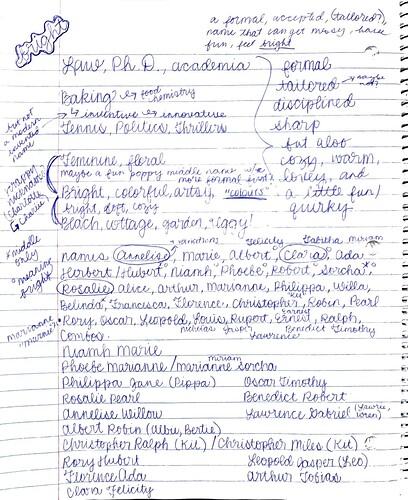 a formal, accepted, (tailored?),
name that can get messy, have
fun, feel bright
bright
Law, Ph.D., academia
formal
Baking → food chemistry
tailored → maybe
disciplined
but not
a modern
invented
name
→ inventive → innovative
Tennis, Politics, Thrillers
sharp
but also
cozy, warm,
lovely, and
a little fun/
quirky
Feminine, floral
maybe a fun poppy middle name w/a
more formal first?
Bright, colorful, artsy, "colours"
bright, soft, cozy
Beach, cottage, garden, iggy!
middle
only
"meaning
bright"
variations
Felicity
Tabitha
miriam
names: Annelise, Marie, Albert, Clara, Ada
Herbert/Hubert, Niamh, Phoebe, Robert, Sorcha,
Rosalie, alice, arthur, Marianne, Philippa, Willa,
Belinda, Francesca, Florence, Christopher, Robin, Pearl
Kit
Ernest
marianne
Rory, Oscar, Leopold, Louis, Rupert, Ernest, Ralph,
Combos
Gasper
Benedict
Timothy
Lawrence
Niamh Marie
miriam
Phoebe Marianne/marianne sorcha
Philippa Jane (Pippa)
Oscar Timothy
Rosalie Pearl
Benedict Robert
Annelise Willow
Lawrence Gabriel (Lawrie,
Albert Robin (Albie, Bertie)
Christopher Ralph (Kit) / Christopher Miles (Kit)
Rory Hubert
Leopold Gasper (Leo)
Florence Ada
Arthur Tobias
Clara Felicity